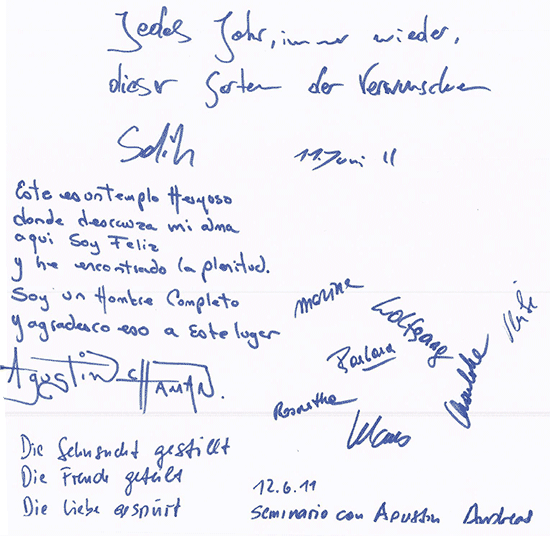 Jedes Jahr, immer wieder,
dieser Garten der Verwunschen
Salih
11. Juni 11
Este es un templo Hermoso
donde descanza mi alma
aqui Soy Feliz
y he encontrado la plenitud.
Soy un Hombre Completo
y agradesco eso a Este lugar
Agustin Chaman.
Marina
Wolfgang
Barbara
Roswitha
Klaus
Die Sehnsucht gestillt
Die Freude geteilt
Die Liebe erspürt
12.6.11
Seminario con Agustin Andreas